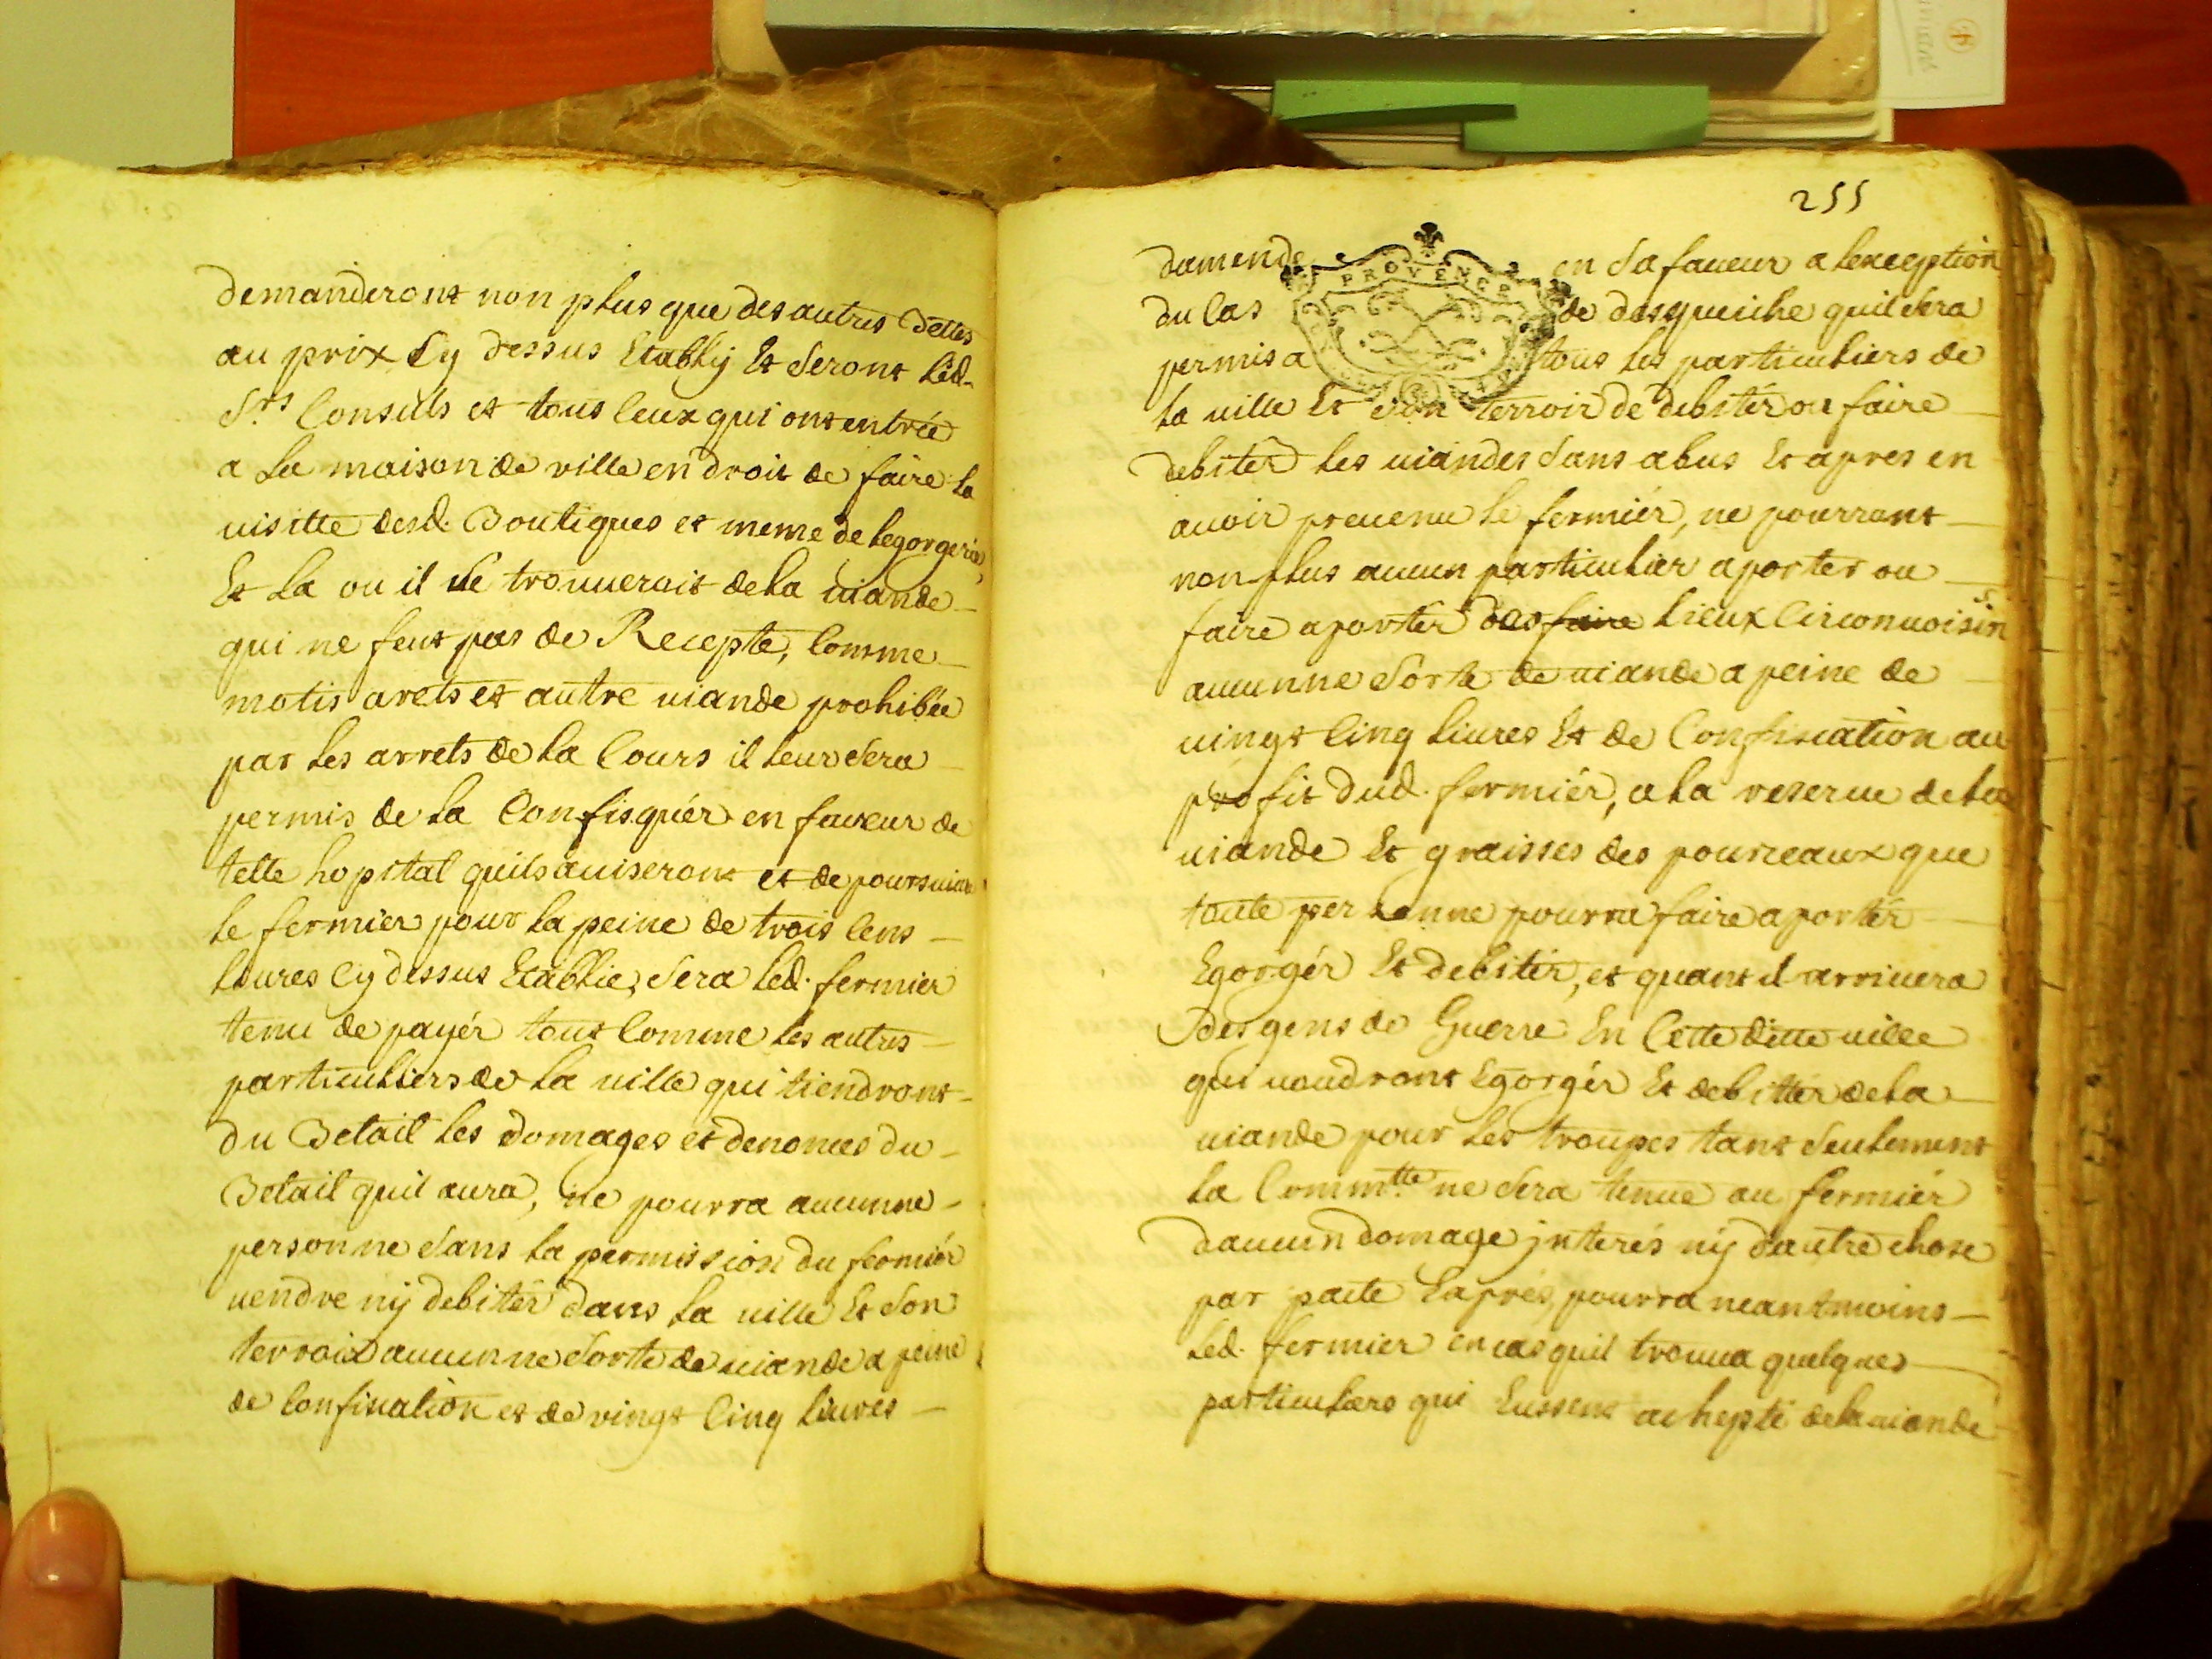 demanderont non plus que des autres dettes
au prix Cy dessus Etably Et Seront Led.
Srs Consuls et tous Ceux qui ont entrée
a La maison de ville en droit de faire La
uisitte desd. Boutiques et meme de Legorgerie,
Et La ou il se trouuerait de La uiande
qui ne feut pas de Recepte, Comme
motis arets et autre uiande prohibée
par Les arrets de La Cours il Leur Sera
permis de La Confisquér en faueur de
telle hopital quils auiseront et de poursuiure
Le fermier pour La peine de trois Cens
Liures Cy dessus Etablie, Sera Led. fermier
tenu de payér tout Comme Les autres
particulliers de La uille qui tiendront
du Betail Les domages et denonces du
Betail quil aura, ne pourra aucunne
personne Sans La permission du fermiér
uendre nÿ debittér dans La uille Et Son
terroir aucunne Sorte de uiande a peine
de Confiscation et de vingt Cinq Liures
255
damende en Sa faueur a Lexception
du Cas de desqueiche quil Sera
permis a tous Les particuliers de
La uille Et Son terroir de debitér ou faire
debitér Les uiandes Sans abus Et apres en
auoir preuenu Le fermiér, ne pourrant
non plus aucun particulier aporter ou
faire aportér des faire Lieux Circonuoisins
aucunne Sorte de uiande a peine de
uingt Cinq Liures Et de Confiscation au
profit dud. fermiér, a La reserue de La
uiande Et graisses des pourceaux que
toute personne pourra faire aportér
Egorgér Et debiter, et quant il arriuera
Des gens de Guerre En Cette ditte uille
qui uoudront Egorgér Et debittér de La
uiande pour Les troupes tant Seulement
La Commtté ne Sera tenue au fermiér
daucun domage jnterés nÿ dautre chose
par pacte Exprés, pourra neantmoins
Led. fermier en cas quil trouua quelques
particuliers qui Eussent achepté de La uiande
PROVENCE